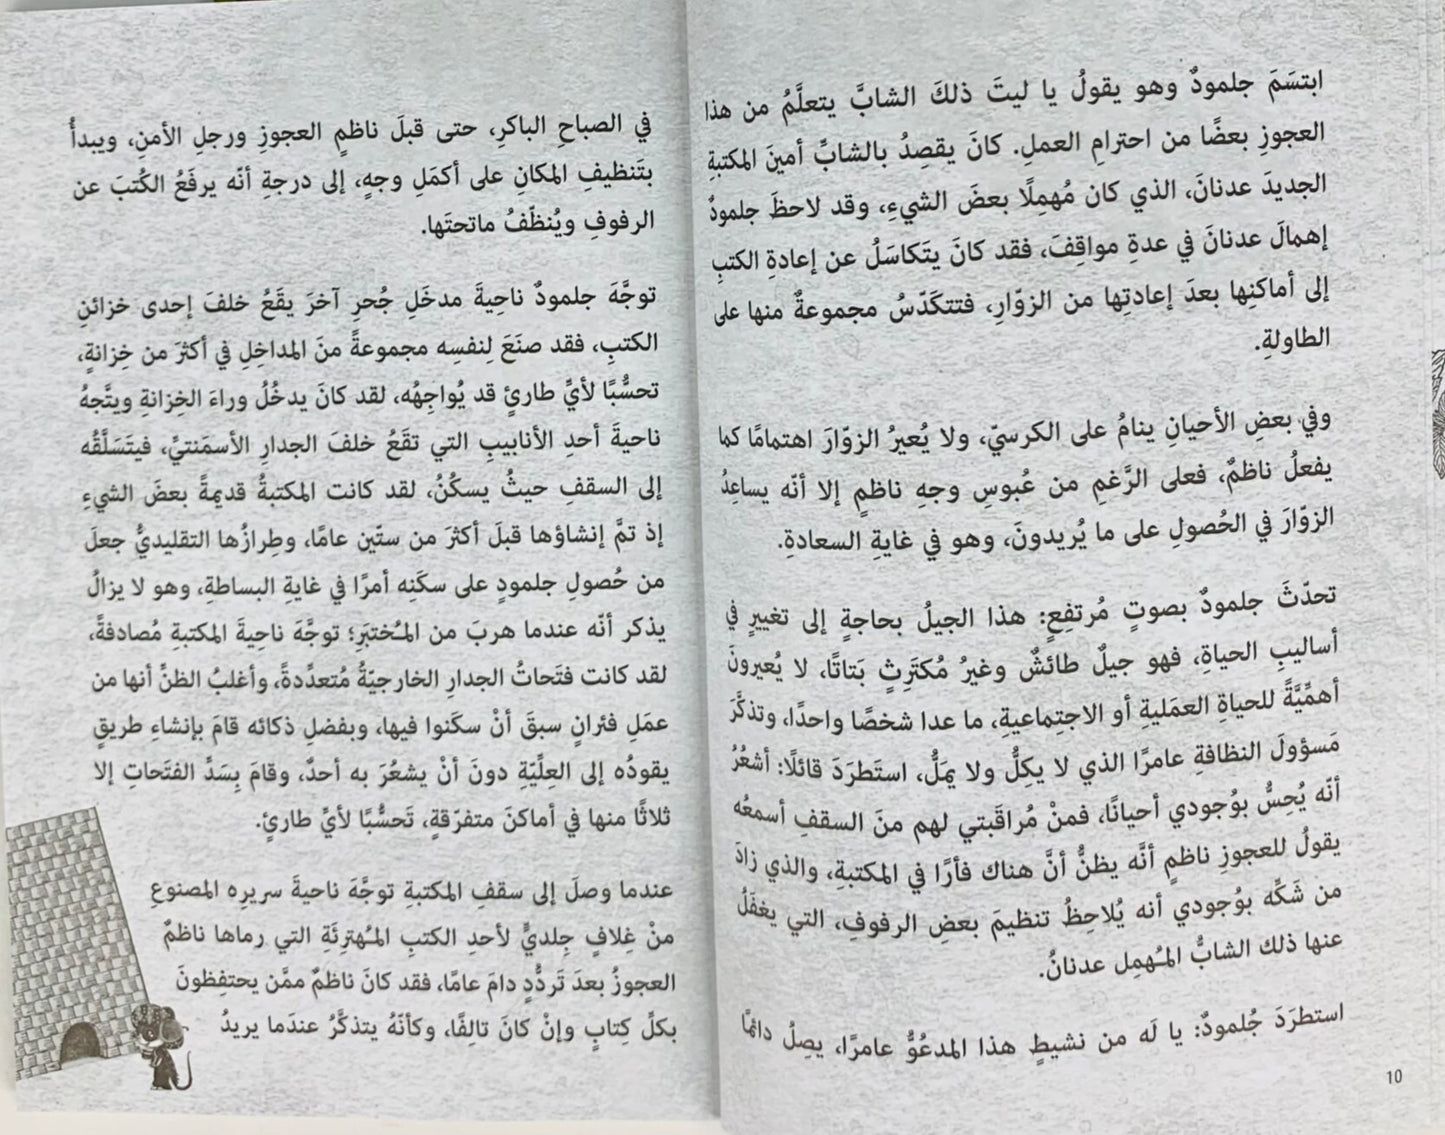 ابتسَمَ جلمودٌ وهو يقولُ يا ليتَ ذلكَ الشابَّ يتعلَّمُ من هذا
العجوزِ بعضًا من احترامِ العملِ. كانَ يقصِدُ بالشابِّ أمينَ المكتبةِ
الجديدَ عدنانَ، الذي كان مُهمِلًا بعضَ الشيءِ، وقد لاحظَ جلمودٌ
إهمالَ عدنانَ في عدةِ مواقِفَ، فقد كانَ يتَكاسَلُ عن إعادةِ الكتبِ
إلى أماكنِها بعدَ إعادتِها من الزوّارِ، فتتكَدّسُ مجموعةٌ منها على
الطاولةِ.
وفي بعضِ الأحيانِ ينامُ على الكرسيّ، ولا يُعيرُ الزوّارَ اهتمامًا كما
يفعلُ ناظمٌ، فعلى الرَّغمِ من عُبوسِ وجهِ ناظمٍ إلا أنّه يساعِدُ
الزوّارَ في الحُصولِ على ما يُريدونَ، وهو في غايةِ السعادةِ.
تحدّثَ جلمودٌ بصوتٍ مُرتفِعٍ: هذا الجيلُ بحاجةٍ إلى تغييرٍ في
أساليبِ الحياةِ، فهو جيلٌ طائشٌ وغيرُ مُكترَثٍ بَتاتًا، لا يُعيرونَ
أهمِّيَّةً للحياةِ العمَليةِ أو الاجتِماعيةِ، ما عدا شخصًا واحدًا، وتذكَّرَ
مَسؤولَ النظافةِ عامرًا الذي لا يكِلُّ ولا يمَلُّ، استَطرَدَ قائلًا: أشعُرُ
أنّه يُحِسُّ بوُجودي أحيانًا، فمنْ مُراقَبتي لهم منَ السقفِ أسمعُه
يقولُ للعجوزِ ناظمٍ أنَّه يظنُّ أنَّ هناك فأرًا في المكتبةِ، والذي زادَ
من شَكِّه بوُجودي أنه يُلاحِظُ تنظيمَ بعضِ الرفوفِ، التي يغفَلُ
عنها ذلك الشابُّ المُهمِل عدنانُ.
استطرَدَ جُلمودٌ: يا لَه من نشيطٍ هذا المدعُوُّ عامرًا، يصِلُ دائمًا
10
في الصباحِ الباكرِ، حتى قبلَ ناظمٍ العجوزِ ورجلِ الأمنِ، ويبدأُ
بتَنظيفِ المكانِ على أكمَلِ وجهٍ، إلى درجةِ أنّه يرفَعُ الكُتبَ عن
الرفوفِ ويُنظّفُ ماتحتَها.
توجَّهَ جلمودٌ ناحِيةَ مدخَلِ جُحرٍ آخرَ يقَعُ خلفَ إحدى خزائنِ
الكتبِ، فقد صنَعَ لِنفسِه مجموعةً منَ المداخِلِ في أكثرَ من خِزانةٍ،
تحسُّبًا لأيِّ طارئٍ قد يُواجِهُه، لقد كانَ يدخُلُ وراءَ الخِزانةِ ويتَّجهُ
ناحيةَ أحدِ الأنابيبِ التي تقَعُ خلفَ الجدارِ الأسمَنتيِّ، فيتَسَلَّقُه
إلى السقفِ حيثُ يسكُنُ، لقد كانت المكتبةُ قديمةً بعضَ الشيءِ
إذ تمَّ إنشاؤها قبلَ أكثرَ من ستّين عامًا، وطِرازُها التقليديُّ جعلَ
من حُصولِ جلمودٍ على سكَنِه أمرًا في غايةِ البساطةِ، وهو لا يزالُ
يذكر أنّه عندما هربَ من المُختبَرِ؛ توجَّهَ ناحيةَ المكتبةِ مُصادفةً،
لقد كانت فتَحاتُ الجدارِ الخارجيّةُ مُتعدِّدةً، وأغلبُ الظنِّ أنها من
عمَلِ فئرانٍ سبقَ أنْ سكَنوا فيها، وبفضلِ ذكائه قامَ بإنشاءِ طريقٍ
يقودُه إلى العِلِّيّةِ دونَ أنْ يشعُرَ به أحدٌ، وقامَ بِسَدِّ الفتَحاتِ إلا
ثلاثًا منها في أماكنَ متفرّقةٍ، تَحسُّبًا لأيِّ طارئٍ.
عندما وصلَ إلى سقفِ المكتبةِ توجَّهَ ناحيةَ سريرِه المصنوعِ
منْ غِلافٍ جِلديٍّ لأحدِ الكتبِ المُهترِئَةِ التي رماها ناظمٌ
العجوزُ بعدَ تَردُّدٍ دامَ عامًا، فقد كانَ ناظمٌ ممَّن يحتفِظونَ
بكلِّ كِتابٍ وإنْ كانَ تالِفًا، وكأنّهُ يتذكَّرُ عندَما يريدُ